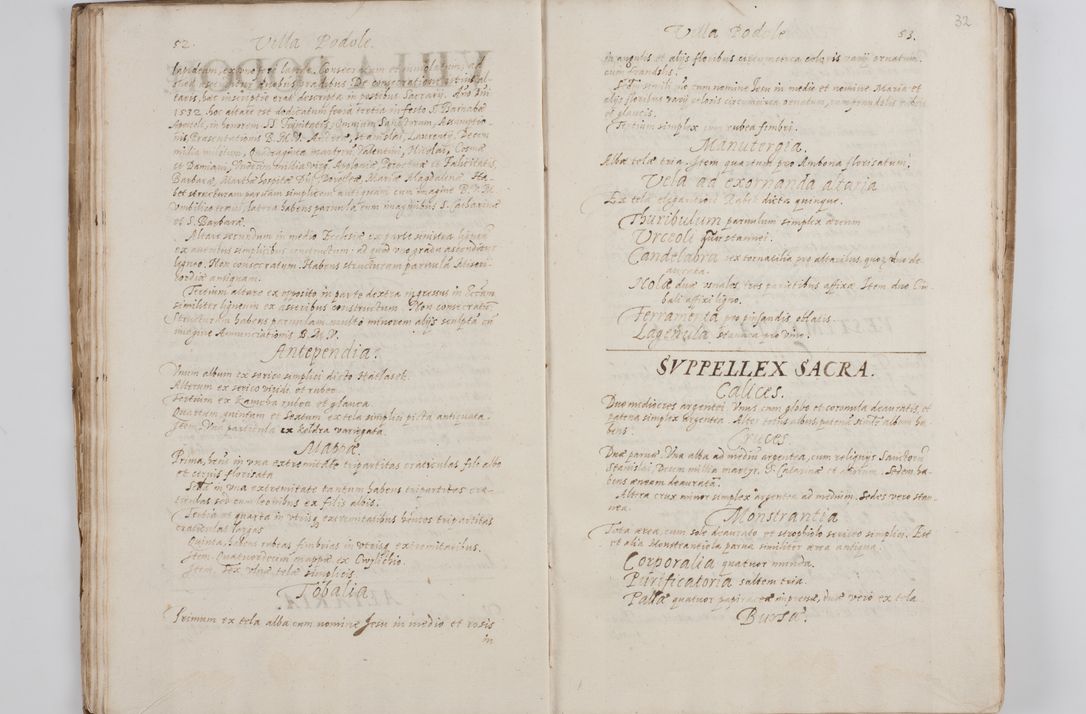 52. Villa Podole.
lapideum, ex uno fere latere. Consecratum et inviolatum, ad
quod ascenditur duobus gradibus. De consecratione istius al-
taris, hæc inscriptio erat descripta in postibus Sacrarij. Año Dñi
1532 hoc altare est dedicatum feria tertia in festo S. Barnabæ
Apostoli, in honorem SS. Trinitatis, Omnium Sanctorum, Assumptio-
nis, Præsentationis B. M. V. Stanislai, Laurentij, Decem
millia militum, Quadraginta martirum, Valentini, Nicolai, Cosmæ
et Damiani, Undecim millia virg. Apoloniæ Perpetuæ et Fælicitatis,
Barbaræ, Marthæ hospitæ Dñi, Dorotheæ, Mariæ Magdalenæ. Ha-
bet structuram parvam simplicem antiquam cum imagine B. V. M.
Umbilico tenus, latera habens parvula cum imaginibus S. Catharinæ
et S. Barbaræ.
Altare secundum in medio Ecclesiæ ex parte sinistra ligneum
ex asseribus simplicibus constructum. Ad quod uno gradu ascenditur
ligneo. Non consecratum. Habens structuram parvulam Miseri-
cordiæ antiquam.
Tertium altare ex opposito in parte dextra ingressus in Eccłiam
similiter ligneum ex asseribus constructum. Non consecratum
Structuram habens parvulam multo minorem alijs sculptam cum
imagine Annunciationis B. M. V.
Antependia.
Unum album ex serico simplici dicto Hatłasek.
Alterum ex serico viridi et rubeo.
Tertium ex Kamcha rubea et glauca
Quartum, quintum et Sextum ex tela simplici picta antiquata.
Item, Una particula ex keldra variegata.
Mappæ.
Prima, habens in una extremitate tripartitas craticulas filo albo
et cerijs florisata
2da in una extremitate tantum habens tripartitas cra-
ticulas sed cum leonibus ex filis albis.
Tertia et quarta in utrisq extremitatibus habentes tripartitas
craticulas largas
Quinta, habens rubeas fimbrias in utrisq extremitatibus.
Item. Quatuordecim mappæ ex Cwylicho.
Item, Sex ulnæ telæ simplicis.
Tobalia
Primum ex tela alba cum nomine Jesu in medio et rosis
in
Villa Podole 53. 32
in angulis et alijs floribus circumcirca coloris varij ornatum
cum frandzlis.
2dum simile pio cum nomine Jesu in medio et nomine Maria et
alijs floribus varij coloris circumcirca ornatum, cum frandzlis rubris
et glaucis.
Tertium simplex cum rubea fimbri.
Manutergia.
Albæ telæ tria. Item quartum pro Ambona florisatum.
Vela ad exornanda altaria
Ex tela elegantiori Rabek dicta quinque.
Thuribulum parvulum simplex æreum
Urceoli quatuor stannei.
Candelabra sex tornatilia pro altaribus, quorum duo de-
aurata.
Nolæ duæ usuales, tres parietibus affixæ. Item duo Cim-
bali affixi ligno.
Ferramenta pro pinsandis oblatis.
Lagenula stannea pro vino.
SVPPELLEX SACRA.
Calices.
Duo mediocres argentei. Unus cum globo et coronula deauratis, et
patena simplex argentea. Alter totus albus, patenam simliter albam ha-
bens.
Cruces.
Duæ parvæ. Una alba ad medium argentea, cum reliquijs Sanctorum
Stanislai, Decem millia martyr. S. Catarinæ et aliorum. Sedem ha-
bens æneam deauratam.
Altera crux minor simplex argentea ad medium. Sedes vero stan-
nea.
Monstrantia
Tota ærea, cum sole deaurato et strophiolo sericeo simplici. Est
et alia Monstrantiola parva similiter ærea antiqua.
Corporalia quatuor munda.
Purificatoria saltem tria.
Pallæ quatuor papiraceæ impressæ, duæ vero ex tela
Bursæ.